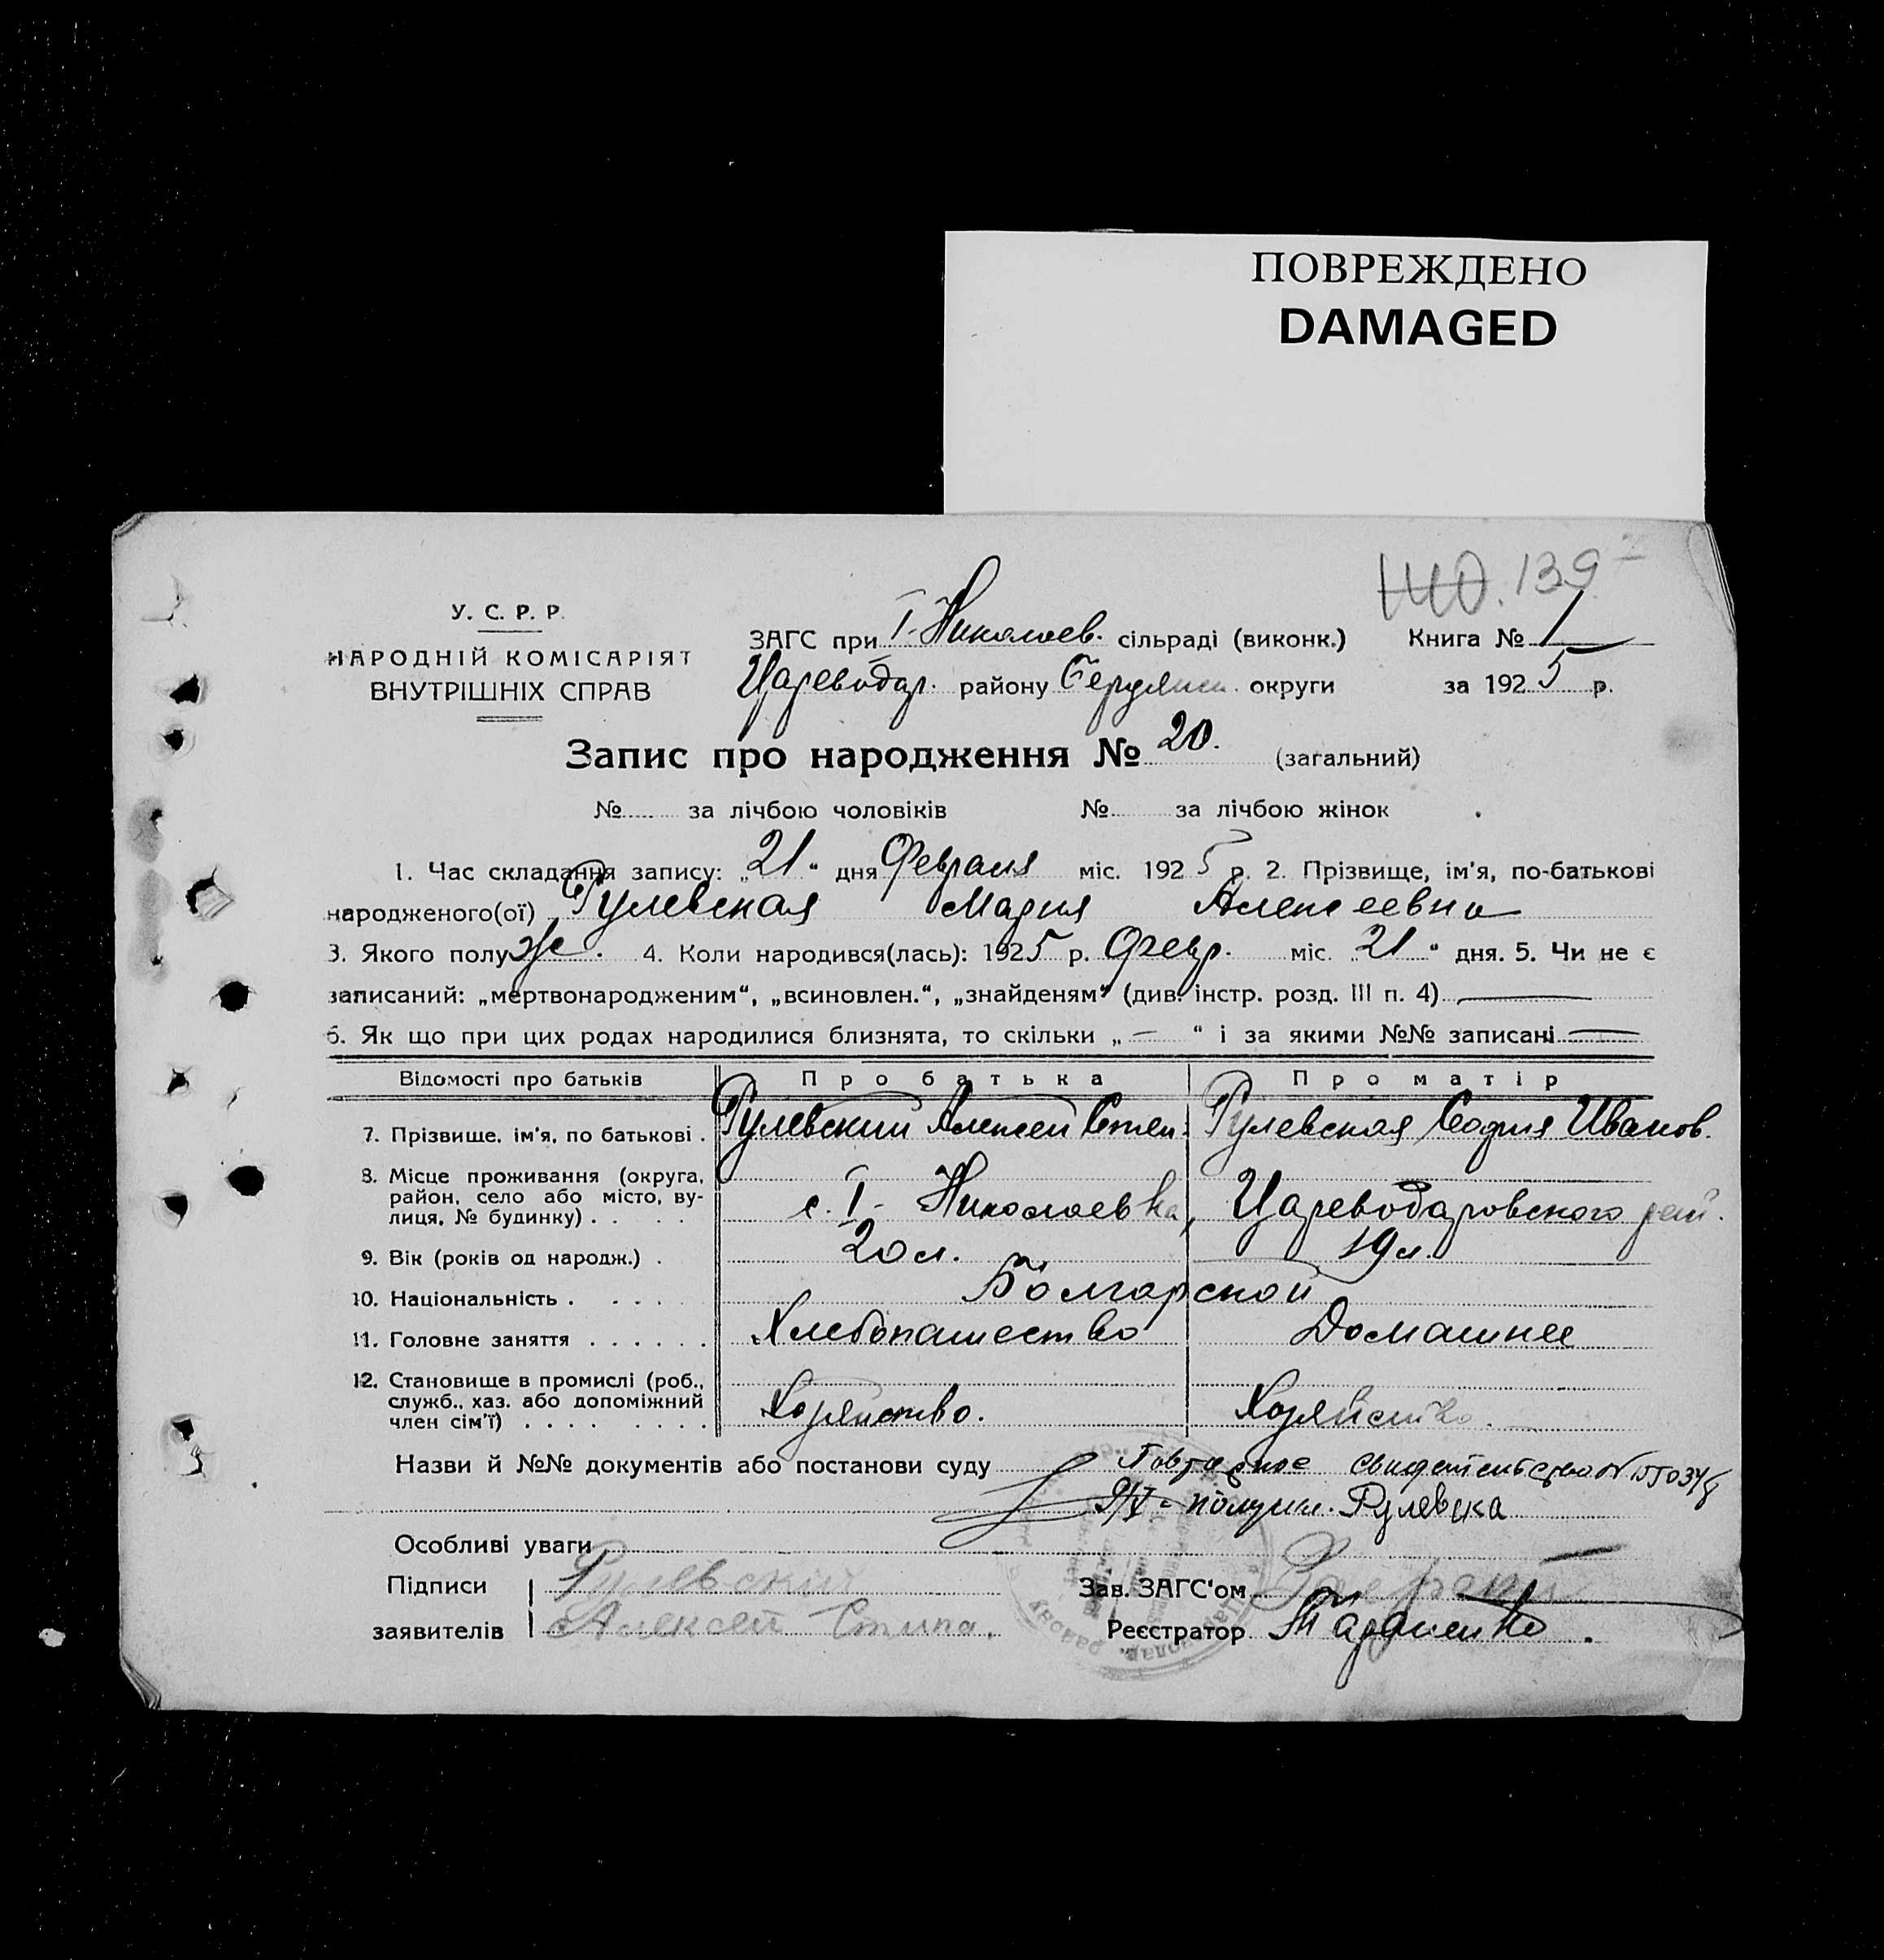 ПОВРЕЖДЕНО
DAMAGED
140. 139
У. С. Р. Р.
НАРОДНІЙ КОМІСАРІЯТ
ВНУТРІШНІХ СПРАВ
ЗАГС при I-Николаев. сільраді (виконк.) Книга № 1
Цареводар. району Бердянск. округи за 1925 р.
Запис про народження № 20. (загальний)
№ за лічбою чоловіків № за лічбою жінок
1. Час складання запису: „21“ дня Февраля міс. 1925 р. 2. Прізвище, ім'я, по-батькові
народженого(ої) Гулевская Мария Алексеевна
3. Якого полу ж. 4. Коли народився(лась): 1925 р. Февр. міс. „21“ дня. 5. Чи не є
записаний: „мертвонародженим“, „всиновлен.“, „знайденям“ (див. інстр. розд. III п. 4) —
6. Як що при цих родах народилися близнята, то скільки „—“ і за якими №№ записані —
Відомості про батьків Про батька Про матір
7. Прізвище, ім'я, по батькові . Гулевский Алексей Степ. Гулевская София Иванов.
8. Місце проживання (округа, район, село або місто, вулиця, № будинку) . . . . с. I-Николаевка, Цареводаровского рай.
9. Вік (років од народж.) . 20 л. 19 л.
10. Національність . . . . . Болгарской
11. Головне заняття . . . . . . Хлебопашество Домашнее
12. Становище в промислі (роб., служб., хаз. або допоміжний член сім'ї) . . . . . . . . Хозяйство. Хозяйство.
Назви й №№ документів або постанови суду Повторное свидетельство №
9/V - получил. Гулевска
Особливі уваги
Підписи Гулевский Зав. ЗАГС'ом
заявителів Алексей Степа. Реєстратор Тараненко.